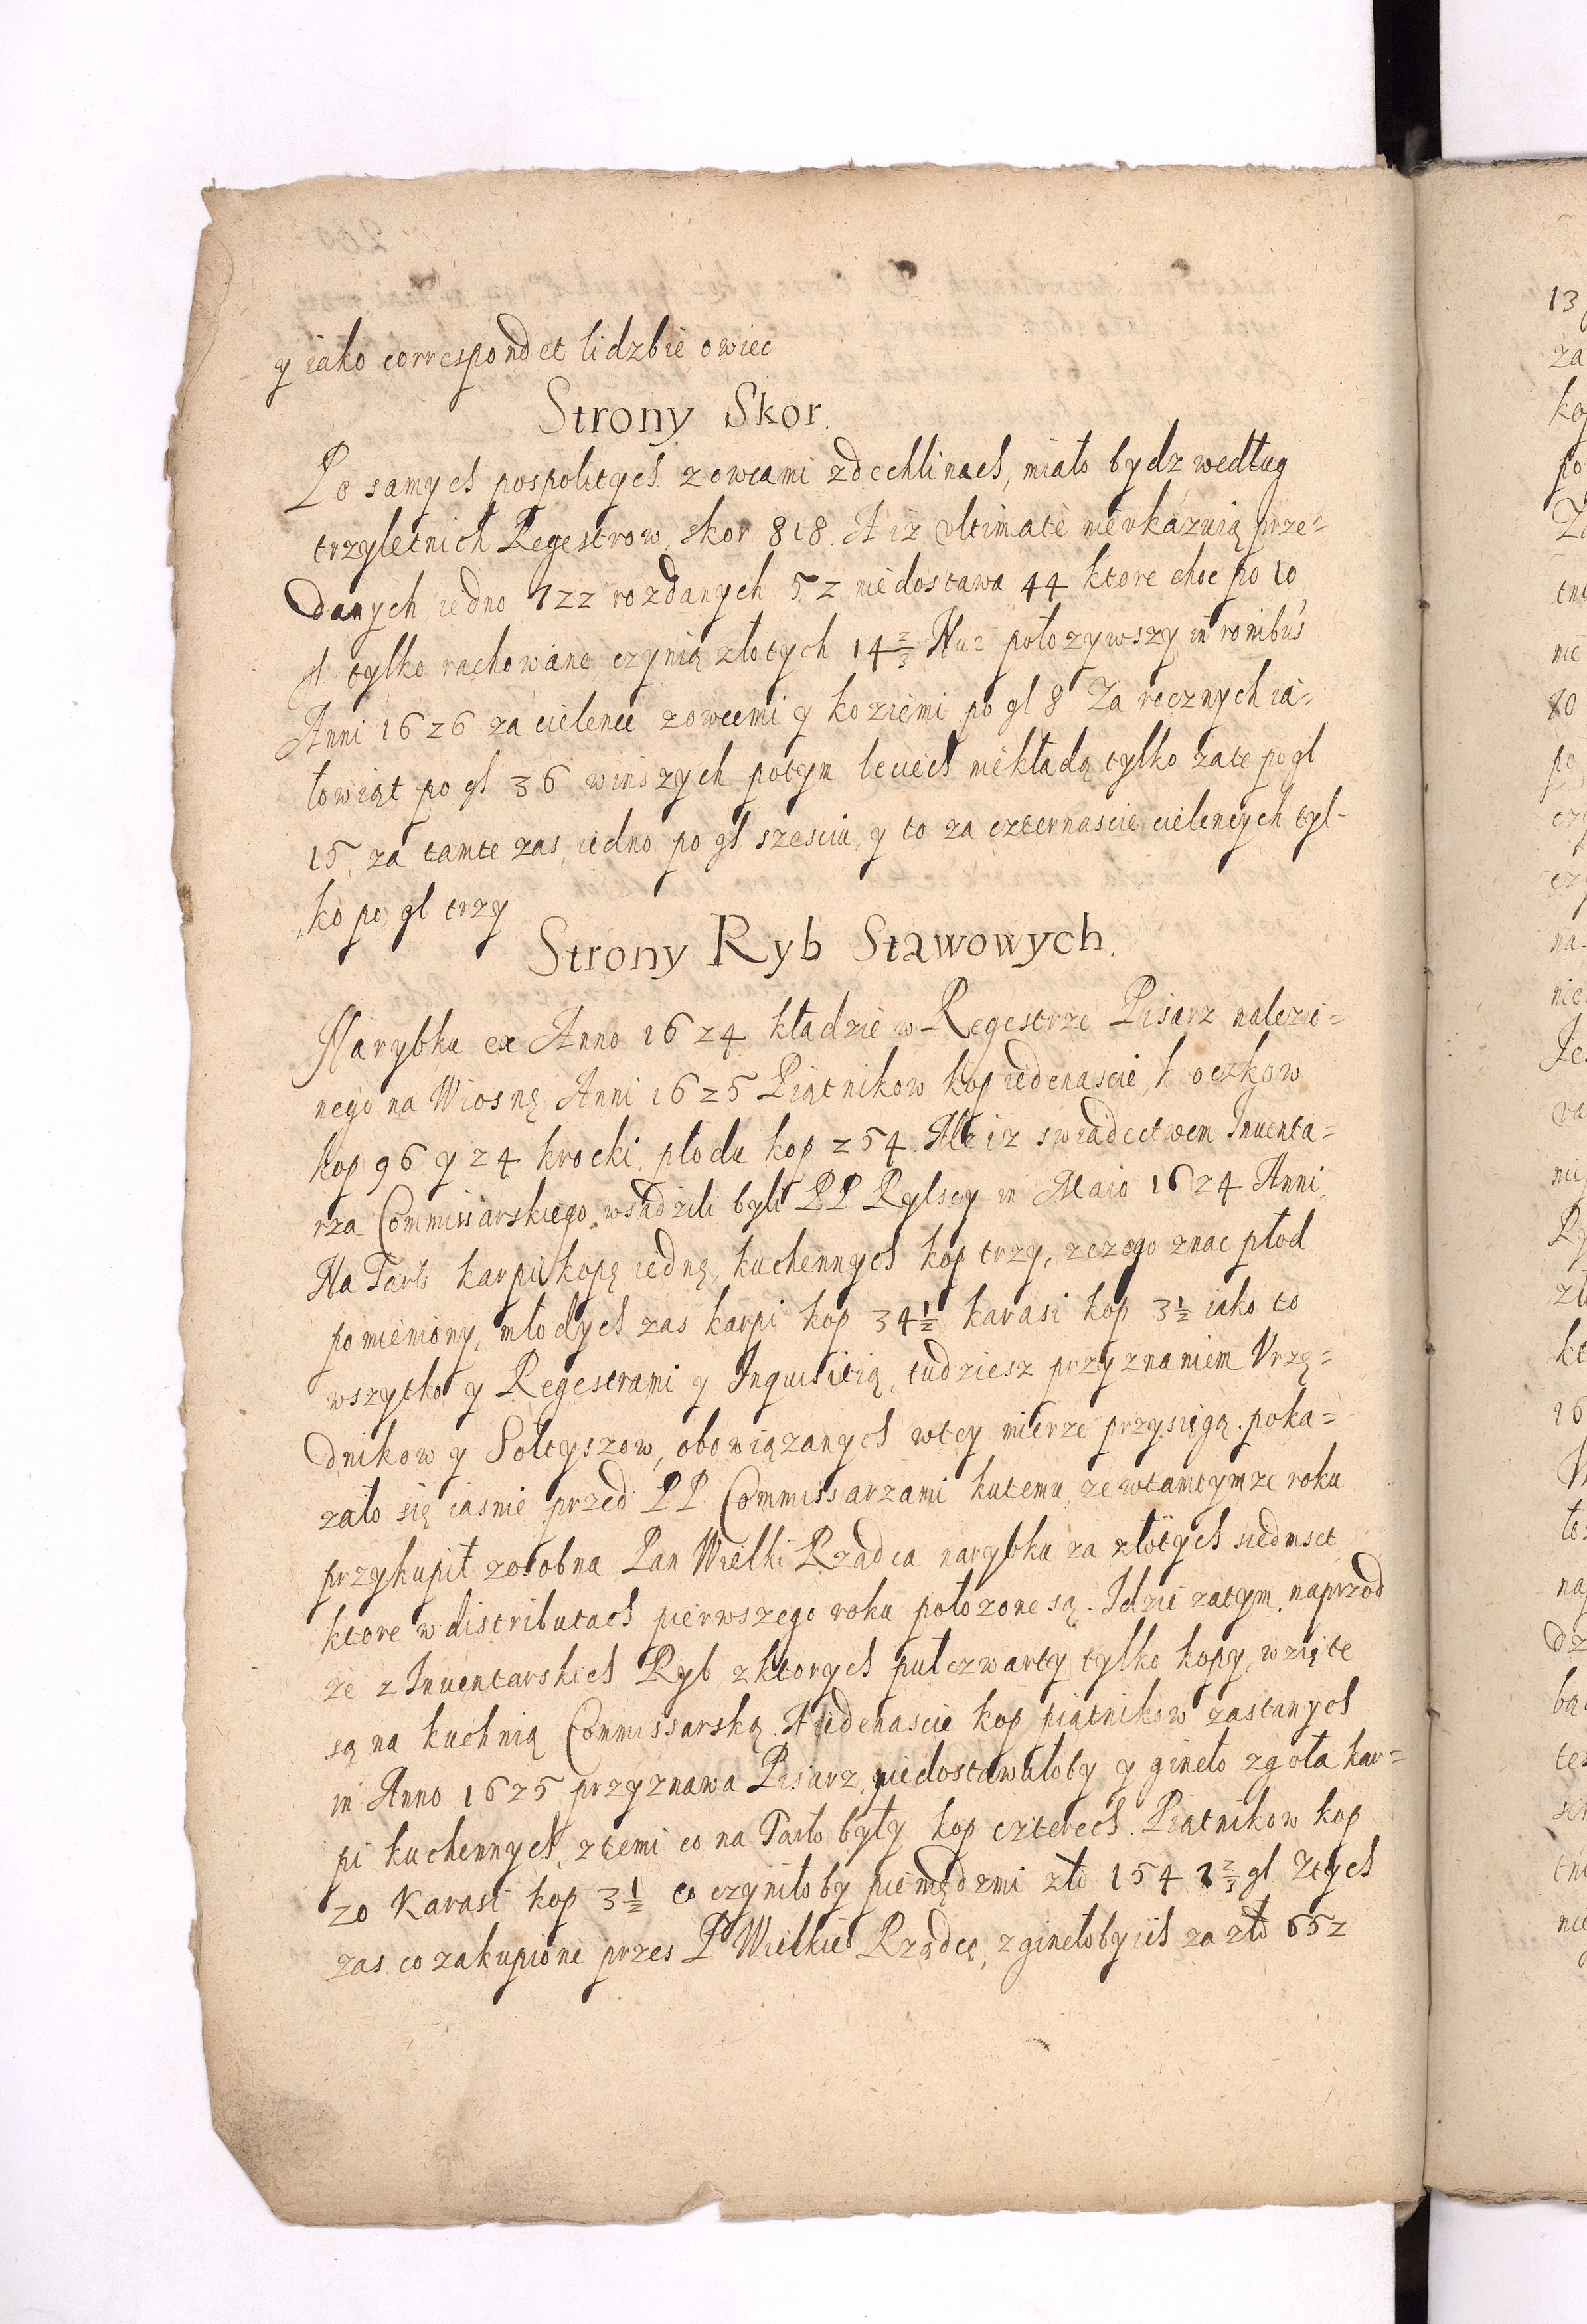 y iako correspondet lidzbie owiec
Strony Skor.
Po samych pospolitych z owcami zdechlinach, miało bydz według
trzyletnich Regestrow, skor 818. A iż vltimatè nievkázuią prze=
danych iedno 722 rozdanych 52 niedostawa 44 ktore choc po 10
gl. tylko rachowáne, czynią złotych 14 2/3 Nuż położywszy in ronibus
Anni 1626 za cielęnce z owcemi y koziemi po gl 8 Za rocznych ia=
łowiąt po gl 36 winszych potym leciech niekładą tylko zate po gl
15, za tamte zas, iedno po gl szesciu, y to za czternascie cielęcych tyl-
ko po gl trzy
Strony Ryb Stawowych.
Narybku ex Anno 1624 kładzie w Regestrze Pisarz nalezio=
nego na Wiosnę Anni 1625 Piątnikow kop iedenascie, k oczkow
kop 96 y 24 kroćki, płodu kop 254. Ale iż swiadectwem Inuenta=
rza Commissarskiego, wsadzili byli PP Rylscy in Maio 1624 Anni,
Na Tarło karpi kopę iednę, kuchennych kop trzy, z czego znac płod
pomieniony, młodych zas karpi kop 34 1/2 karasi kop 3 1/2 iako to
wszytko y Regestrami y Inquisitią, tudziesz przyznaniem Vrzę=
dnikow y Sołtyszow, obowiązanych wtey mierze przysięgą poka=
zało się iasnie przed PP Commissarzami kutemu, ze wtamtymze roku
przykupił zosobna Pan Wielki Rządca narybku za złotych siedmset
ktore w distributach pierwszego roku położone są. Idzie zatym, naprzod
że z Inuentarskich Ryb, z ktorych pułczwarty tylko kopy, wzięte
są na kuchnią Commissarską. A iedenascie kop piątnikow zastanych
in Anno 1625 przyznawa Pisarz, niedostawałoby y ginęło zgoła kar=
pi kuchennych, z temi co na Tarło były kop czterech. Piątnikow kop
20 Karasi kop 3 1/2 co czyniłoby pieniędzmi zło 154 2/3 gl. Ztych
zas co zakupione przes P Wielkie° Rządcę, zginełoby ich za zło 652